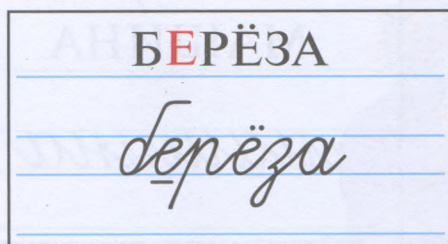 БЕРЁЗА
берёза